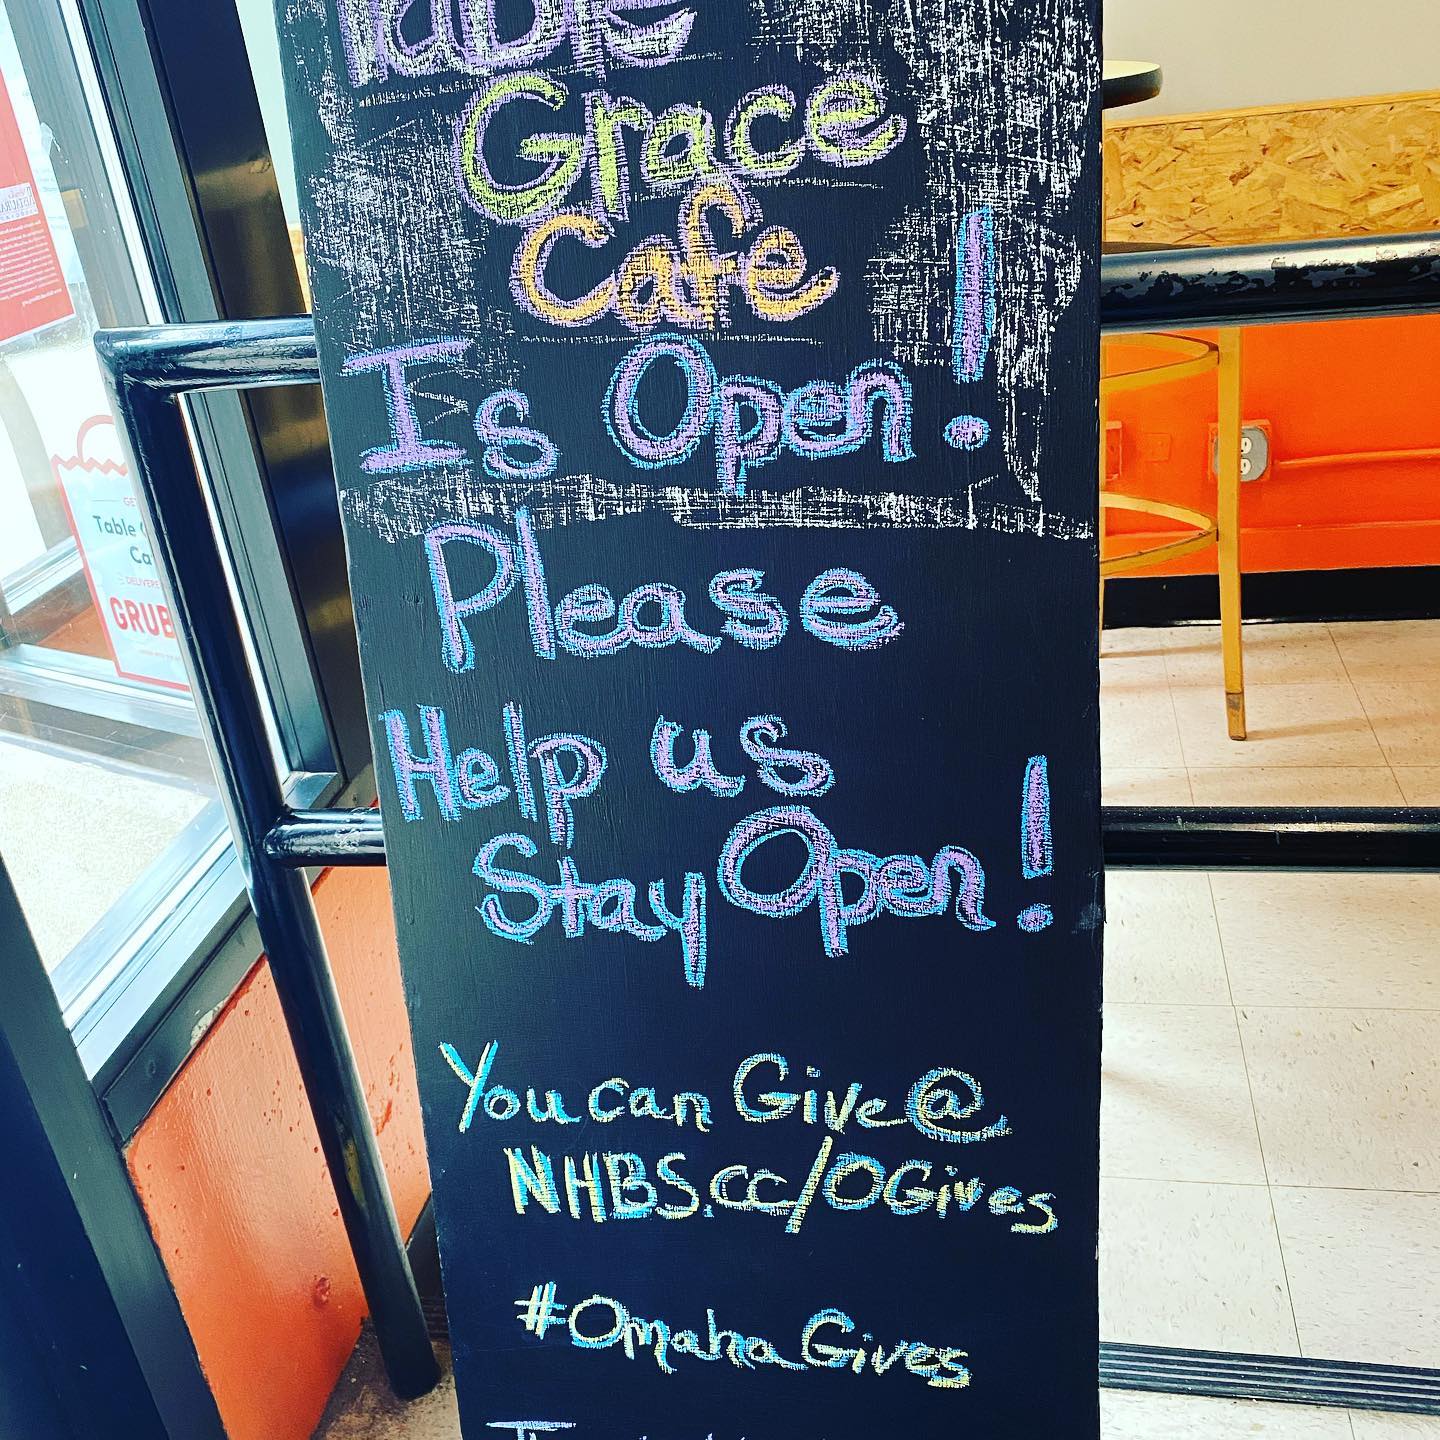 Table
Grace
Cafe
Is Open!
Please
Help us
Stay Open!
You can Give @
NHBS.cc/OGives
#OmahaGives
Table
Ca
DELIVERE
GRUB